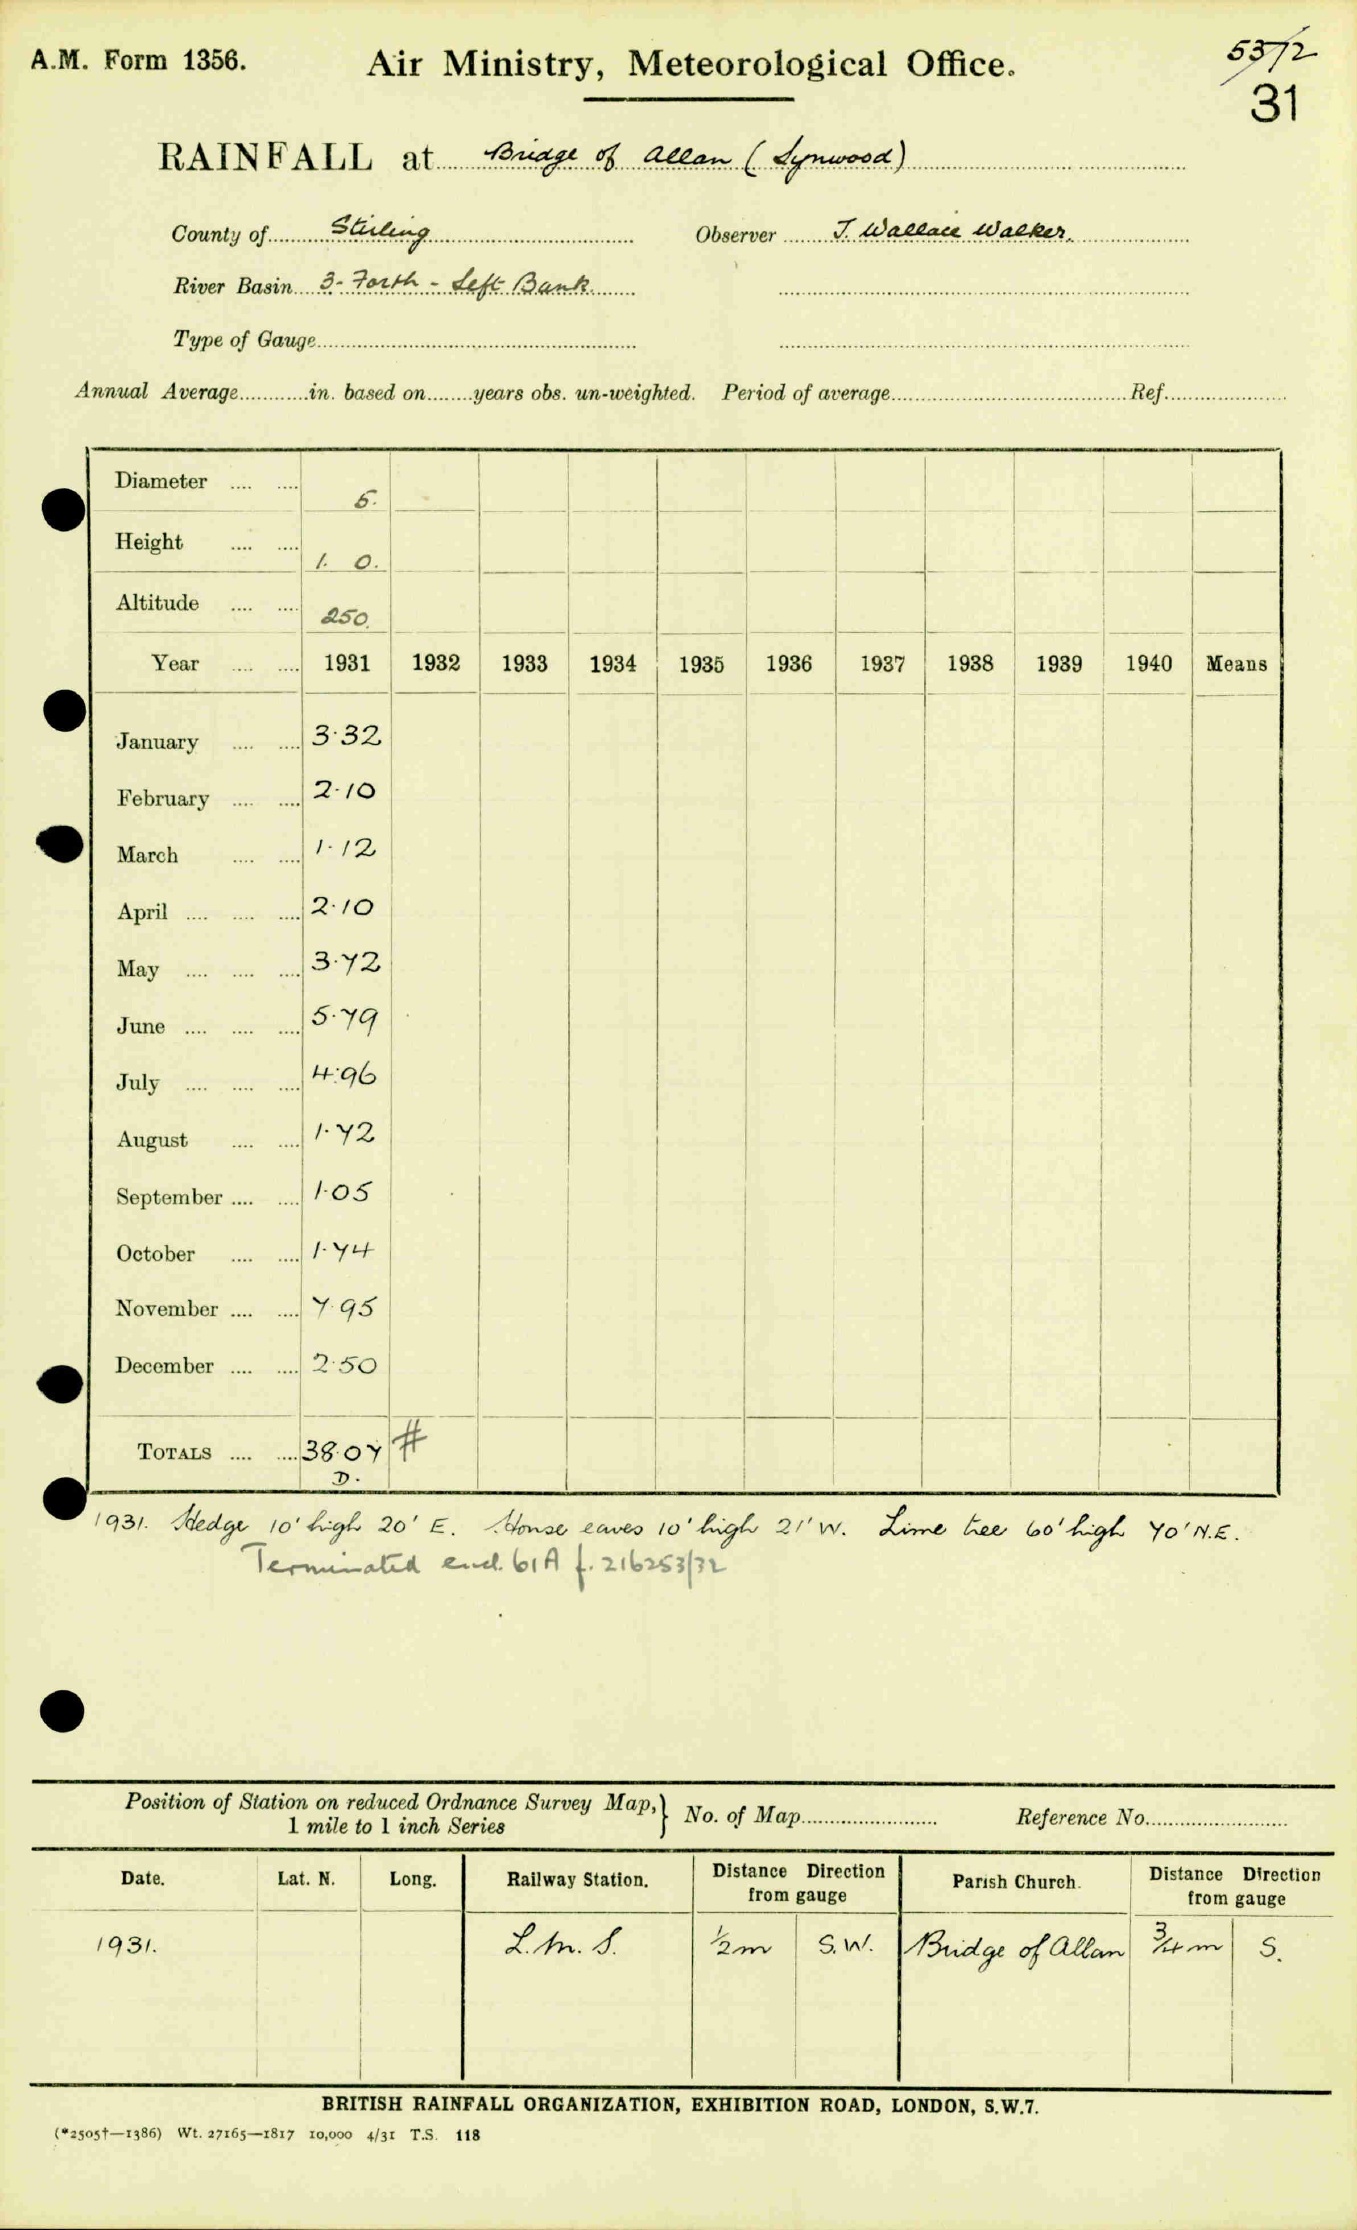 A.M. Form 1356. Air Ministry, Meteorological Office. 53/12
31
RAINFALL at Bridge of Allan (Lynwood)
County of Stirling Observer J. Wallace Walker.
River Basin 3- Forth - Left Bank
Type of Gauge
Annual Average in. based on years obs. un-weighted. Period of average Ref.
Diameter 5.
Height 1. 0.
Altitude 250.
Year 1931 1932 1933 1934 1935 1936 1937 1938 1939 1940 Means
January 3.32
February 2.10
March 1.12
April 2.10
May 3.72
June 5.79
July 4.96
August 1.72
September 1.05
October 1.74
November 7.95
December 2.50
TOTALS 38.07 #
D.
1931. Hedge 10' high 20' E. House eaves 10' high 21' W. Lime tree 60' high 70' N.E.
Terminated encl. 61A f. 216253/32
Position of Station on reduced Ordnance Survey Map, } No. of Map Reference No.
1 mile to 1 inch Series
Date. Lat. N. Long. Railway Station. Distance Direction from gauge Parish Church. Distance Direction from gauge
1931. L.M.S. 1/2 m S.W. Bridge of Allan 3/4 m S.
BRITISH RAINFALL ORGANIZATION, EXHIBITION ROAD, LONDON, S.W.7.
(*2505†—1386) Wt. 27165—1817 10,000 4/31 T.S. 118